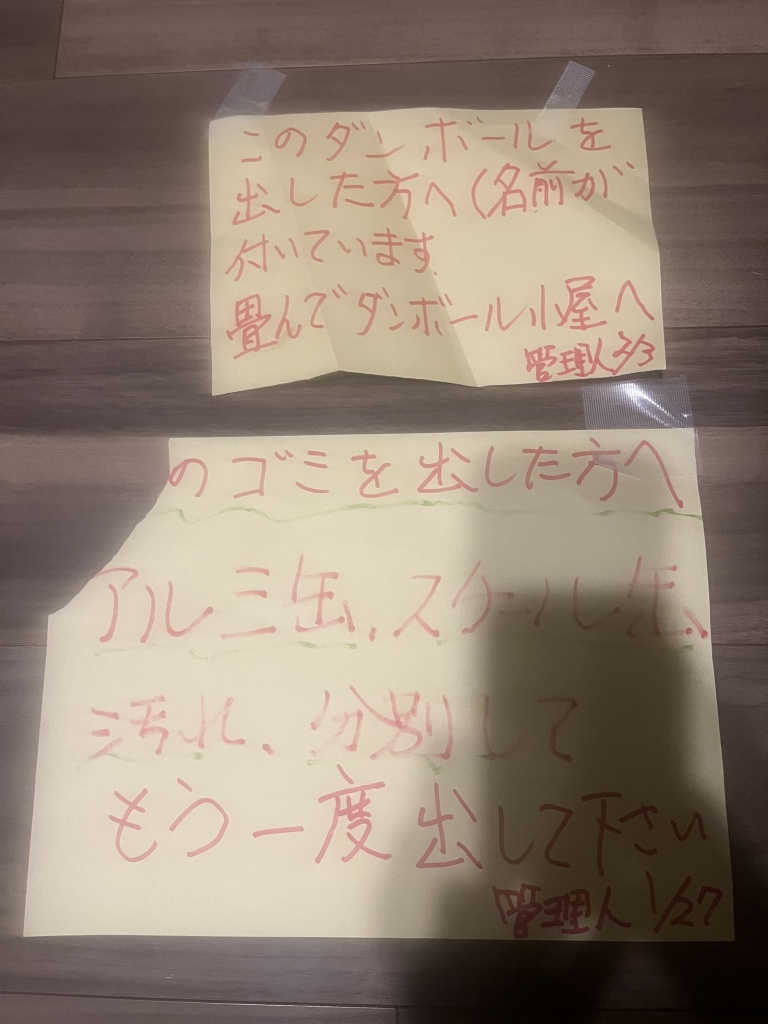 このダンボールを
出した方へ(名前が
付いています
畳んでダンボール小屋へ
管理人 2/3
のゴミを出した方へ
アルミ缶、スケール缶、
汚れ、分別して
もう一度出して下さい
管理人 1/27